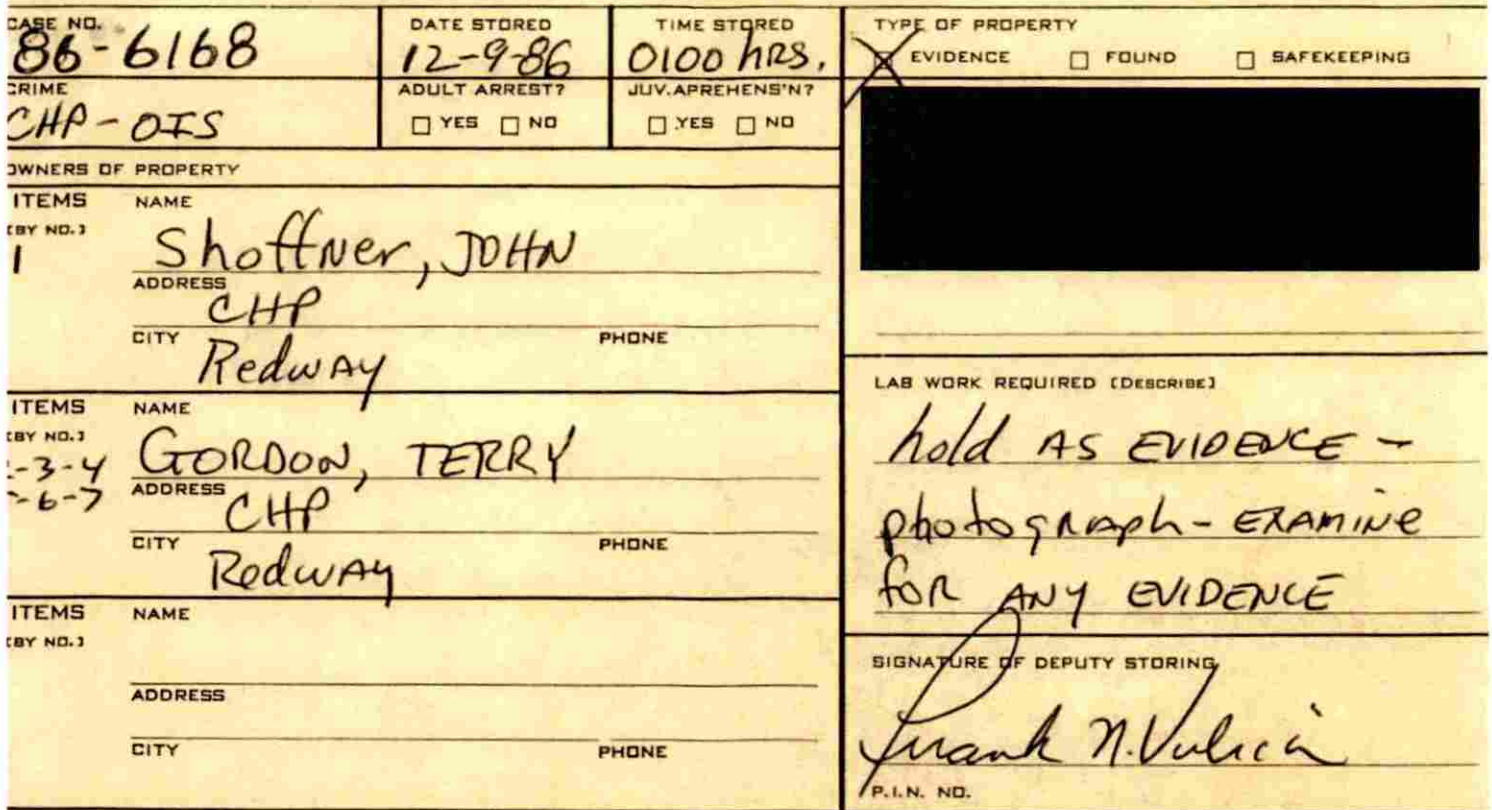 CASE NO. 86-6168
DATE STORED 12-9-86
TIME STORED 0100 hrs.
CRIME CHP-OIS
ADULT ARREST? YES NO
JUV.APREHENS'N? YES NO
OWNERS OF PROPERTY
ITEMS NAME
(BY NO.) 1
Shoffner, JOHN
ADDRESS
CHP
CITY PHONE
Redway
ITEMS NAME
(BY NO.)
-3-4 GORDON, TERRY
-6-7 ADDRESS
CHP
CITY PHONE
Redway
ITEMS NAME
(BY NO.)
ADDRESS
CITY PHONE
TYPE OF PROPERTY
EVIDENCE FOUND SAFEKEEPING
LAB WORK REQUIRED (DESCRIBE)
hold AS EVIDENCE -
photograph - EXAMINE
for ANY EVIDENCE
SIGNATURE OF DEPUTY STORING
Frank N.
P.I.N. NO.